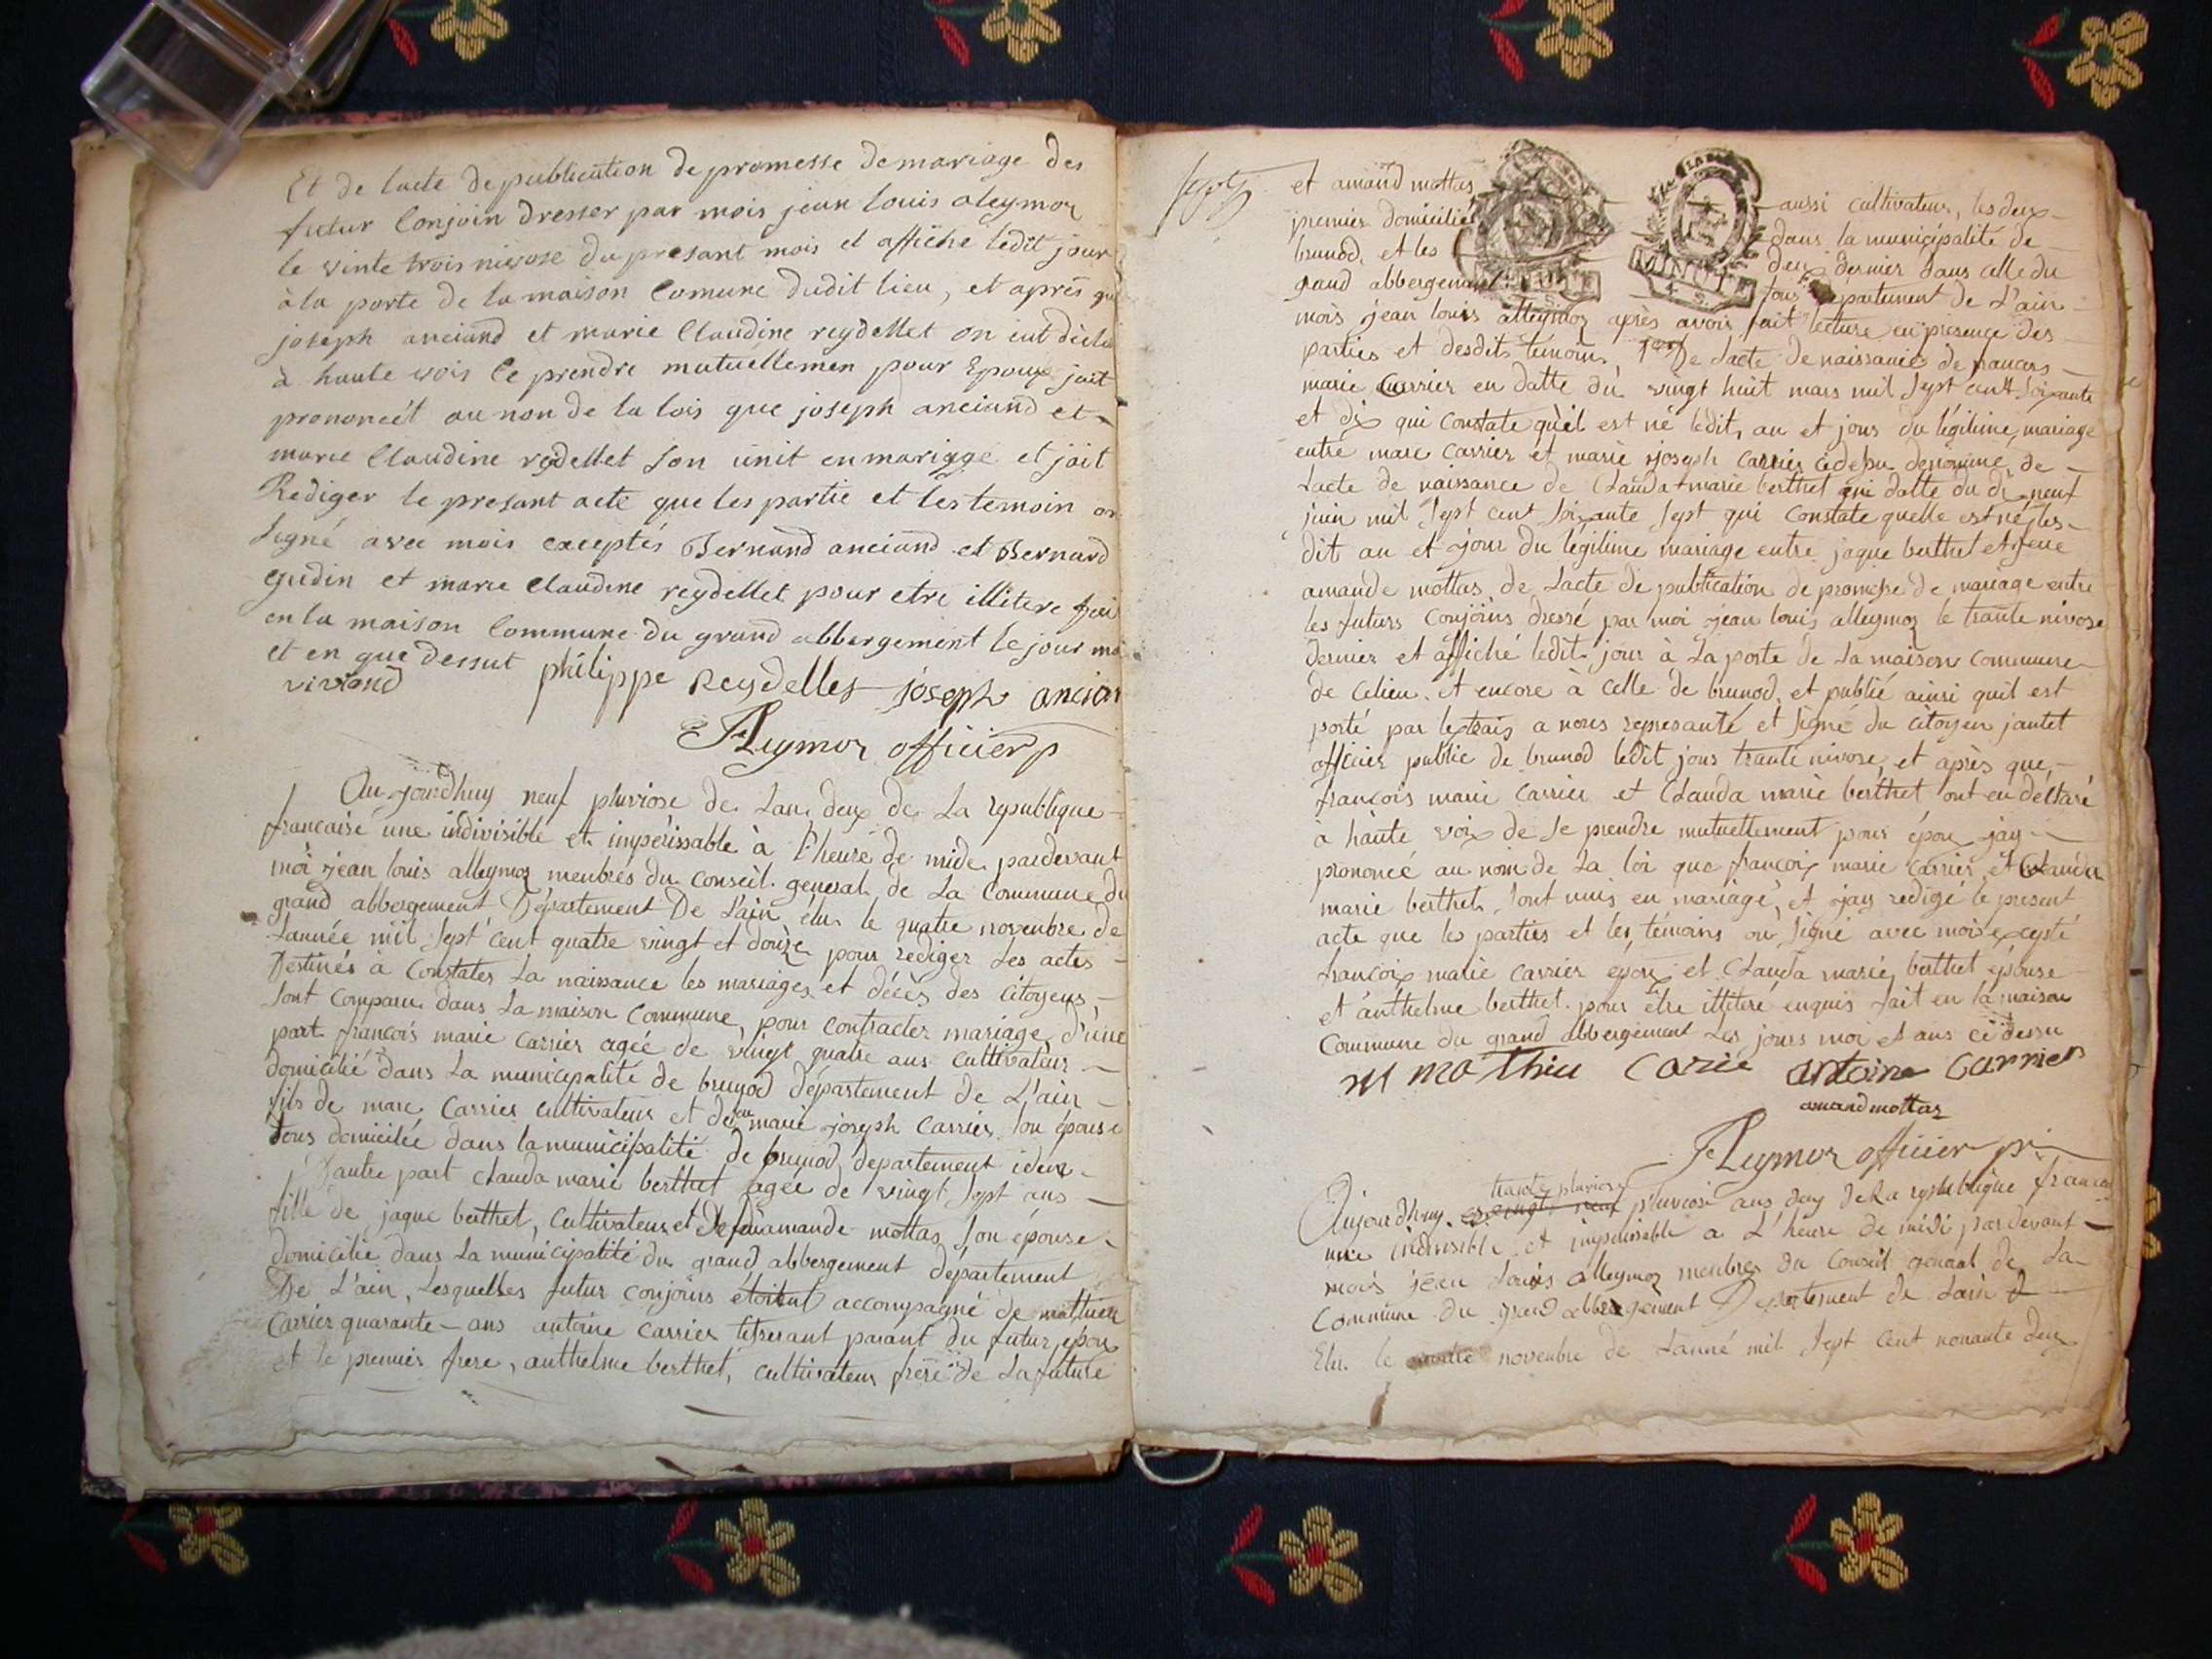 Et de lacte de publication de promesse de mariage des
futur Conjoin dresser par mois jean louis aleymoz
le vinte trois nivose du presant mois et affiche ledit jour
à la porte de la maison Comune dudit lieu, et après que
joseph anciand et marie Claudine reydellet on eut décla
à haute vois Ce prendre mutuellemen pour Epoux jait
prononcét au non de la lois que joseph anciand et
marie Claudine reydellet son unit en mariage et jait
Rediger le presant acte que les partie et les temoin on
Signé avec mois exceptés Bernand anciand et Bernard
gudin et marie Claudine reydellet pour etre illitere fai
en la maison Commune du grand abbergement le jour mo
et en que dessut philippe Reydellet joseph ancian
vivrand
Aleymoz officier p
Au jourdhuy neuf pluviose de Lan deux de La republique
francaise une indivisible et impérissable à l'heure de mide pardevant
moi jean louis alleymoz membrés du Conseil general de La Commune du
grand abbergement Département De L'ain élu le quatre novembre de
Lannée mil Sept cent quatre vingt et douze pour rediger Les actes
Destinés à Constater La naissance les mariages et décès des Citoyens
Sont Comparu dans La maison Commune, pour Contracter mariage d'une
part françois marie Carrier agée de vingt quatre ans Cultivateur
domicilié dans La municipalité de brunod département de L'ain
fils de marc Carrier Cultivateur et de marie joseph Carrier Son épouse
tous domiciliée dans la municipalité de brunod departement idem
D'autre part Clauda marie berthet agée de vingt Sept ans
fille de jaque berthet, Cultivateur et De amande mottas Son épouse
domicilie dans La municipalité du grand abbergement département
De L'ain, Lesquelles futur conjoins étoitent accompagné de mathieu
Carrier quarante ans antoine Carrier parant du futur epoux
et le premier frere, anthelme berthet, Cultivateur frere de La future
et amand mottas aussi Cultivateur, les deux
premier domicilié dans la municipalité de
brunod, et les deux dernier dans celle du
grand abbergement tous Departement de L'ain
mois jean louis alleymoz après avoir fait lecture en présence des
parties et desdits temoins De Lacte de naissance de francois
marie Carrier en datte du vingt huit mars mil Sept cent Soixante
et dix qui Constate quèl est né ledit, an et jours du légitime mariage
entre marc Carrier et marie joseph Carrier denommé, de
Lacte de naissance de Clauda marie berthet en datte du dix neuf
juin mil Sept cent Soixante Sept qui Constate quelle est né les
dit an et jour du légitime mariage entre jaque berthet et
amande mottas de Lacte de publication de promesse de mariage entre
les futurs Conjoins dressé par moi jean louis alleymoz le trante nivose
dernier et affiché ledit jour à La porte de La maison Commune
de celieu. et encore à Celle de brunod, et publié ainsi quil est
porté par lextrais a nous representé et Signé du Citoyen jantet
officier public de brunod ledit jour trante nivose, et après que
françois marie Carrier et Clauda marie berthet ont eu déclaré
à haute voix de Se prendre mutuellement pour épou jay
prononcé au nom de La loi que françois marie Carrier et Clauda
marie berthet Sont unis en mariage, et jay redigé le present
acte que les parties et les témoins on Signé avec moi excepté
françois marie Carrier époux et Clauda marie berthet épouse
et anthelme berthet pour être illiteré enquis fait en la maison
Commune du grand abbergement Les jours moi et ans ci dessu
M mathieu Carié antoine Carrier
amand mottas
Aleymoz officier p
trante pluviose
Aujourdhuy pluviose ans deux de La republique francai
une indivisible et imperissable a L'heure de midi par devant
mois jean Louis alleymoz membres du Conseil general de La
Commune du grand abbergement Departement de Lain
Elu le quatre novembre de Lanné mil Sept Cent nonante deux